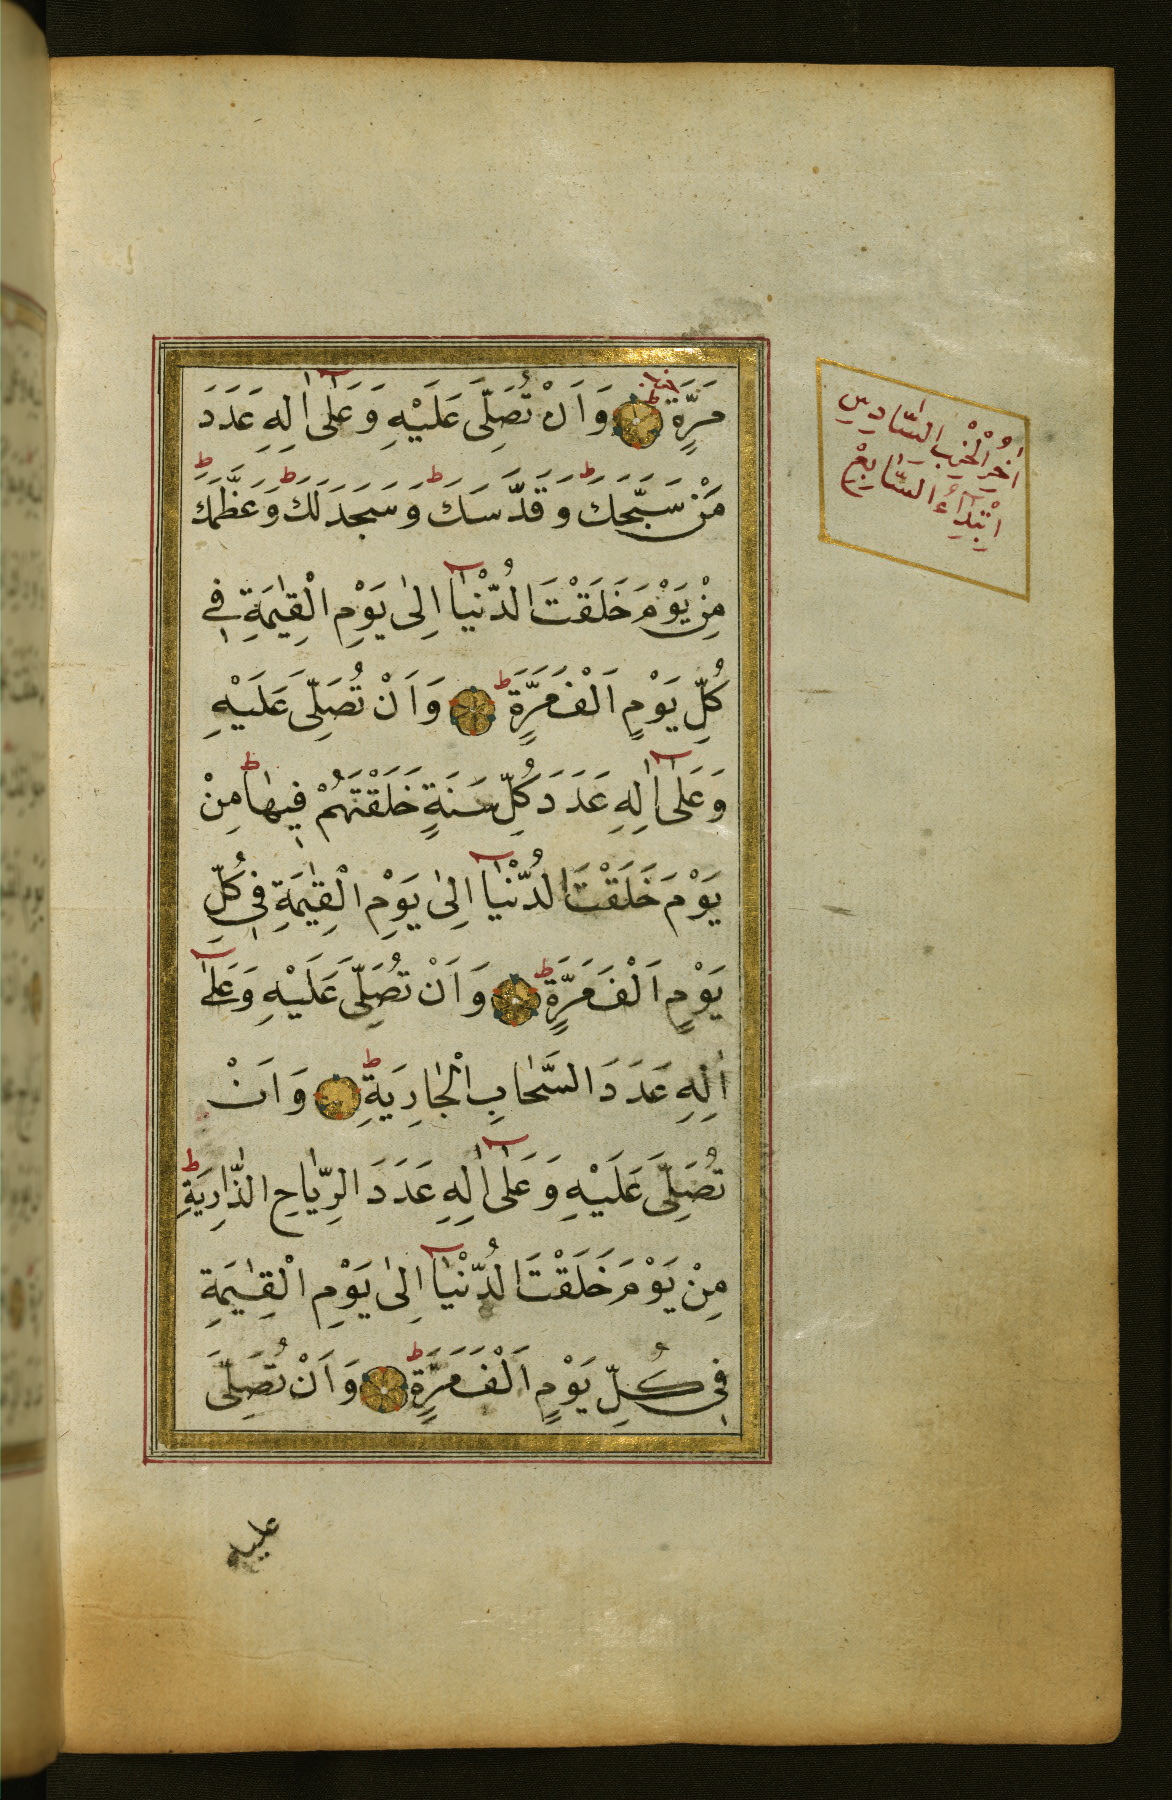 مَرَّةٍ وَاَنْ تُصَلِّىَ عَلَيْهِ وَعَلٰٓى اٰلِهِ عَدَدَ
مَنْ سَبَّحَكَ وَقَدَّسَكَ وَسَجَدَ لَكَ وَعَظَّمَكَ
مِنْ يَوْمَ خَلَقْتَ الدُّنْيَآ اِلٰى يَوْمِ الْقِيٰمَةِ فِى
كُلِّ يَوْمٍ اَلْفَ مَرَّةٍ وَاَنْ تُصَلِّىَ عَلَيْهِ
وَعَلٰٓى اٰلِهِ عَدَدَ كُلِّ سَنَةٍ خَلَقْتَهُمْ فِيهَا مِنْ
يَوْمَ خَلَقْتَ الدُّنْيَآ اِلٰى يَوْمِ الْقِيٰمَةِ فِى كُلِّ
يَوْمٍ اَلْفَ مَرَّةٍ وَاَنْ تُصَلِّىَ عَلَيْهِ وَعَلٰٓى
اٰلِهِ عَدَدَ السَّحَابِ الْجَارِيَةِ وَاَنْ
تُصَلِّىَ عَلَيْهِ وَعَلٰٓى اٰلِهِ عَدَدَ الرِّيَاحِ الذَّارِيَةِ
مِنْ يَوْمَ خَلَقْتَ الدُّنْيَآ اِلٰى يَوْمِ الْقِيٰمَةِ
فِى كُلِّ يَوْمٍ اَلْفَ مَرَّةٍ وَاَنْ تُصَلِّىَ
عليه
اٰخِرُ الْحِزْبِ السَّادِسِ
اِبْتِدَآءُ السَّابِعْ